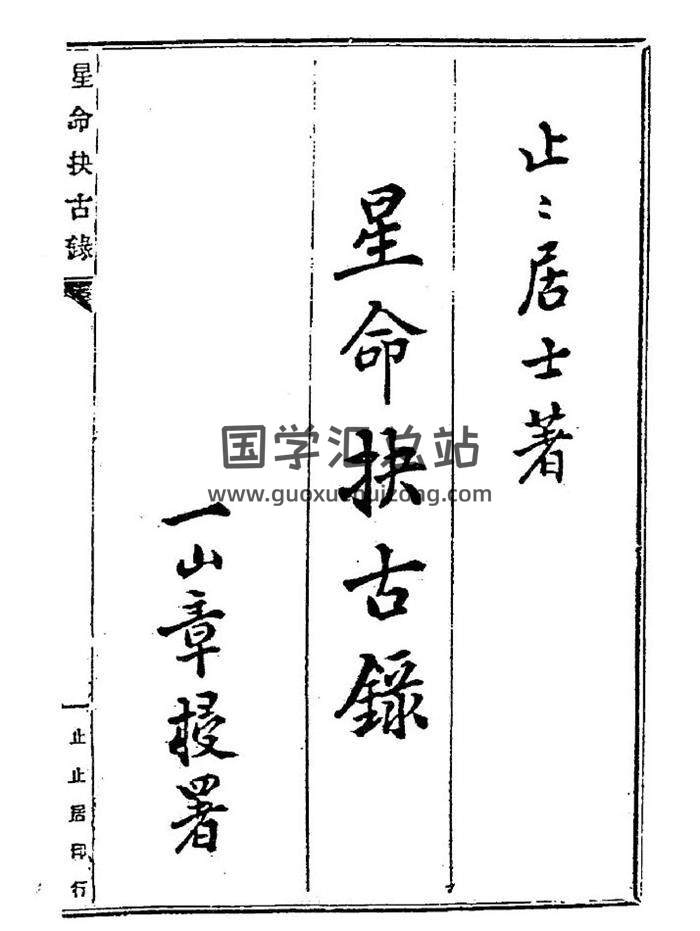 止〻居士著
星命抉古錄
一山章梫署
星命抉古錄
一
止止居印行
国学汇总站
www.guoxuehuizong.com